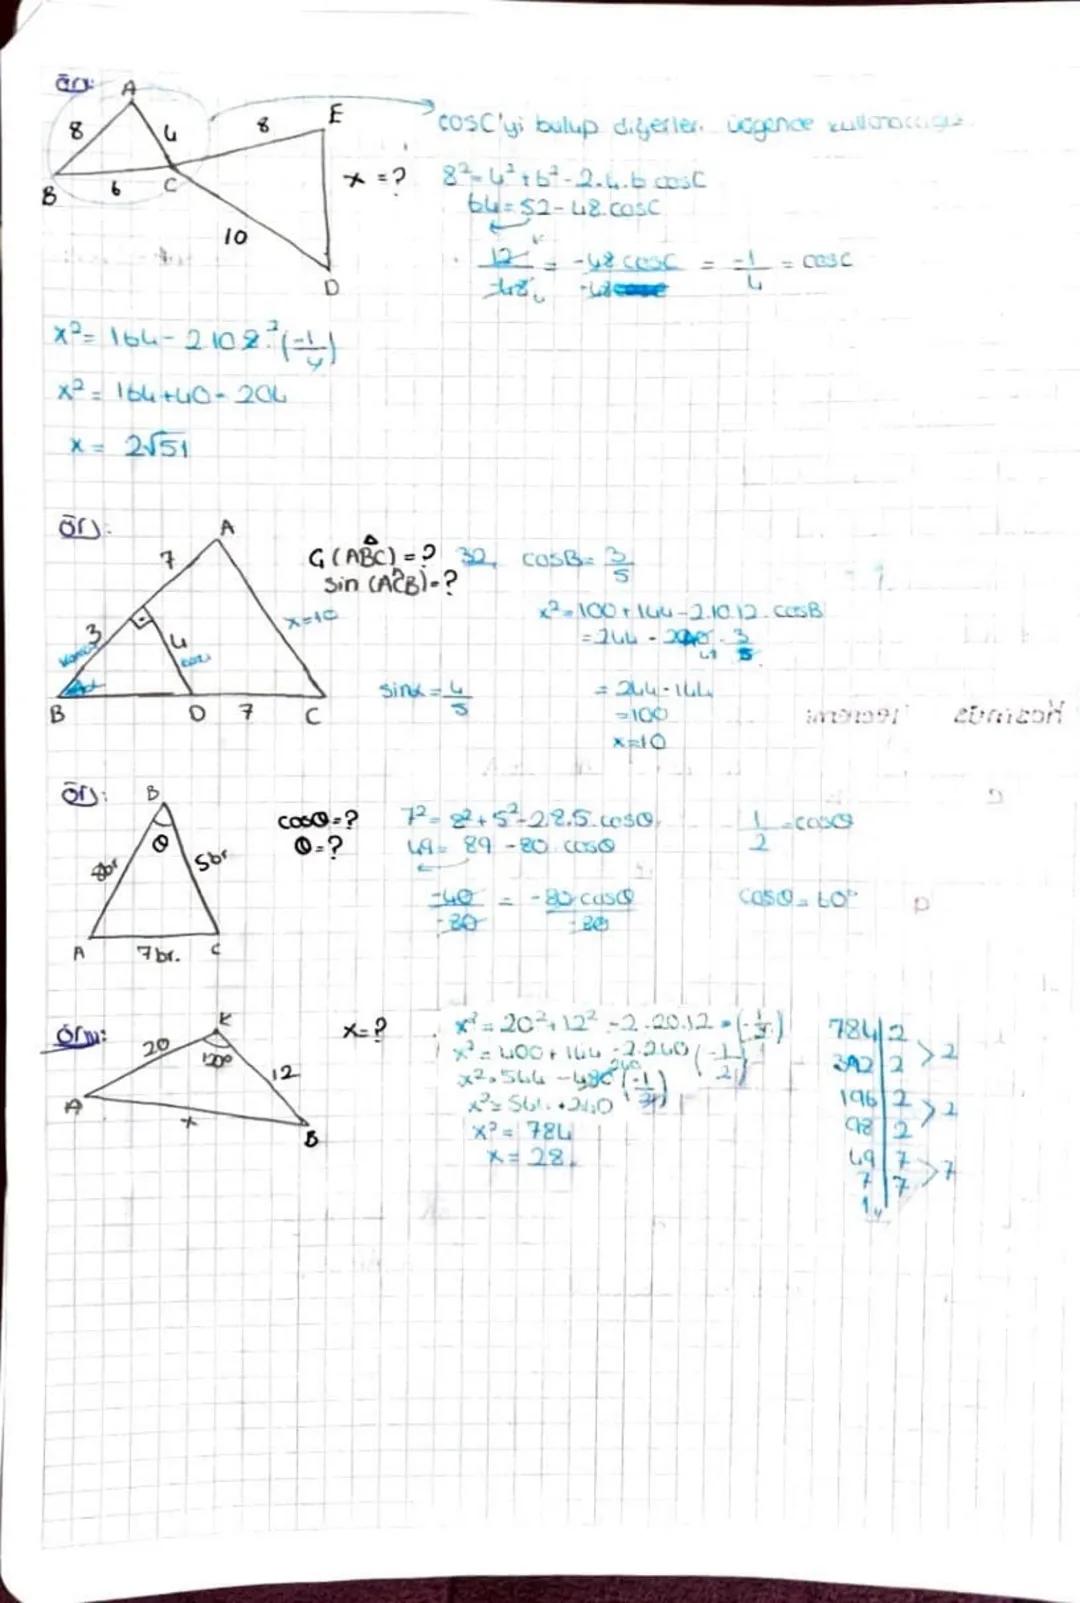 Örn:
A
8
4
8
E
B
6
C
x = ?
10
D
cosC'yi bulup diğerler. üçgende kullanacağız.
8² = 4² + 6² - 2.4.6 cosC
64 = 52 - 48.cosC
12 / -48 = -48 cosC / -48 = -1/4 = cosC
x² = 164 - 2 10 8.² (-1/4)
x² = 164 + 40 = 204
x = 2√51
Örn:
A
7
3
4
x=10
B
D
7
C
Ç(ABC) = ? 32
sin(ACB) = ?
sinα = 4/5
cosB = 3/5
x² = 100 + 144 - 2.10.12.cosB
= 244 - 240 . 3/5
= 244 - 144
= 100
x = 10
Örn:
B
θ
8br
5br
A
7br.
C
cosθ = ?
θ = ?
7² = 8² + 5² - 2.8.5.cosθ
49 = 89 - 80.cosθ
-40 / -80 = -80 cosθ / -80
1/2 = cosθ
cosθ = 60°
Örn:
K
20
120°
12
A
x
B
x = ?
x² = 20² + 12² - 2.20.12.(-1/2)
x² = 400 + 144 - 2.240 (-1/2)
x² = 544 - 480 (-1/2)
x² = 544 + 240
x² = 784
x = 28
784 | 2
392 | 2 > 2
196 | 2
98 | 2 > 2
49 | 7
7 | 7 > 7
1